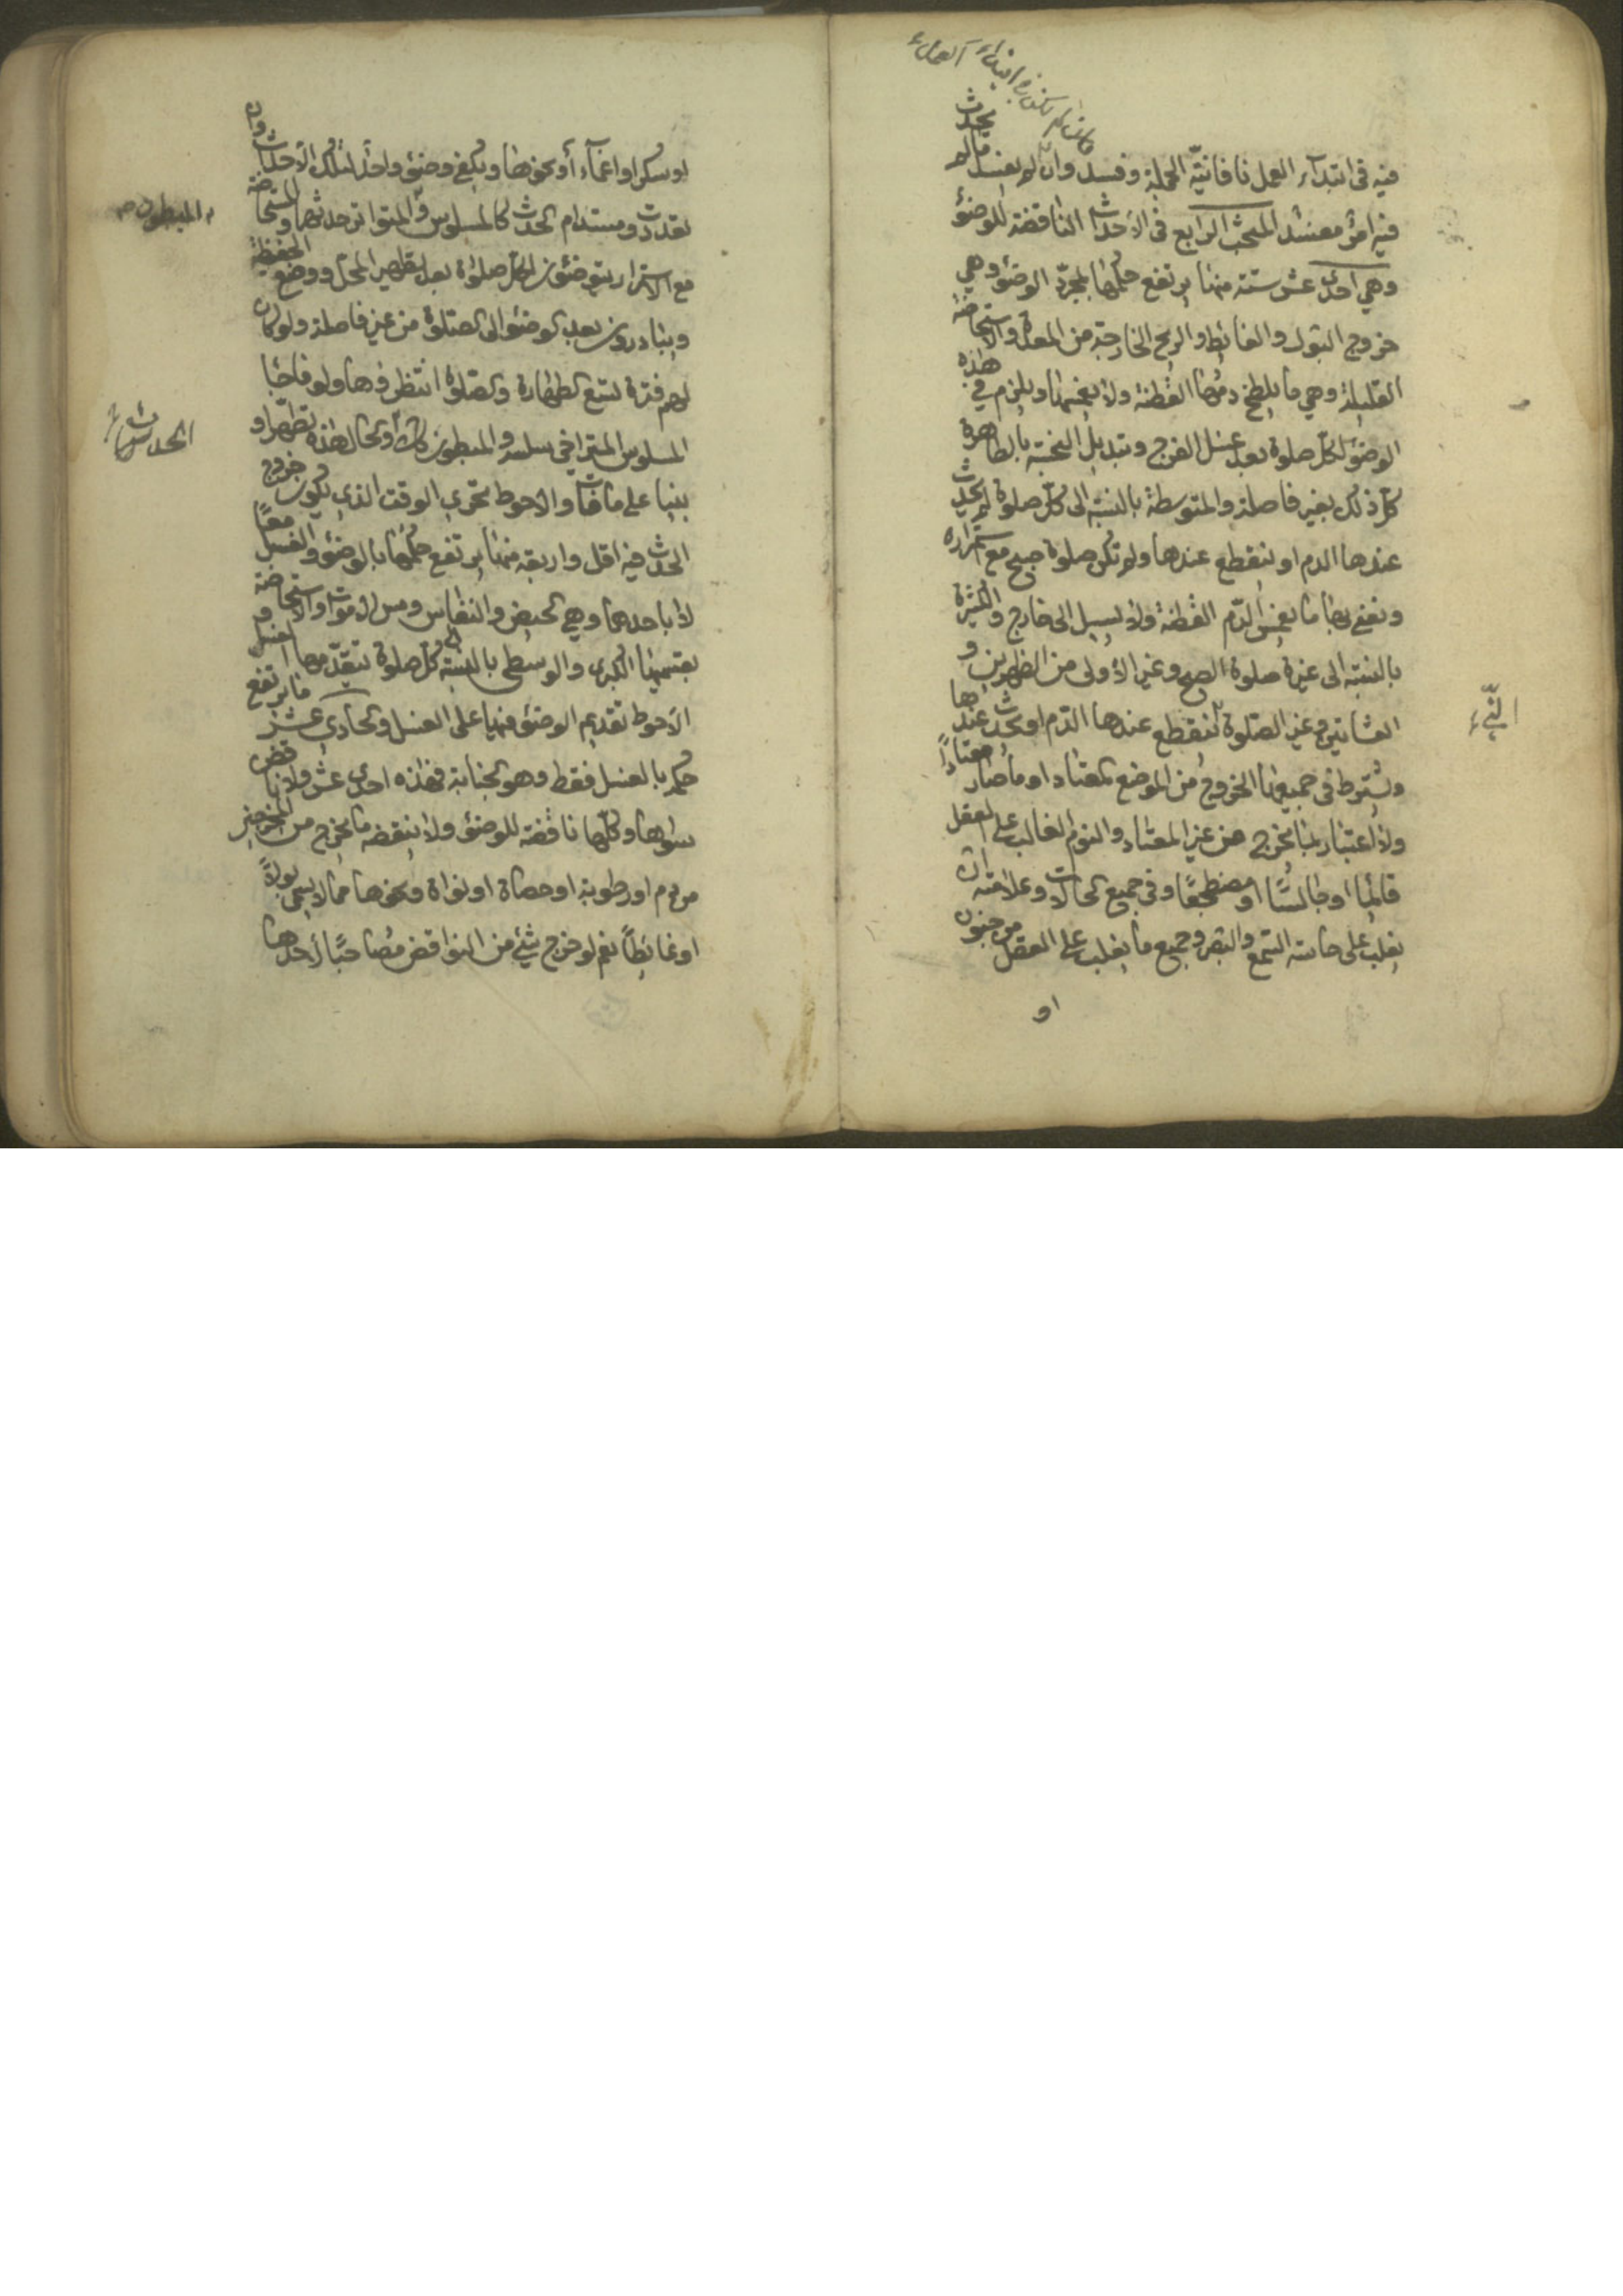 فان لم يكن في ابتداء العمل
فيه في ابتداء العمل نافا نيّة الجملة وفسد وان لم يفسد ما لم يحدث
فيه امر مفسد المبحث الرابع في الاحداث الناقضة للوضوء
وهي احدى عشر ستة منها يرتفع حكمها بمجرّد الوضوء وهي
خروج البول والغائط والريح الخارجة من المعدة والاستحاضة
القليلة وهي ما يلطخ دمها القطنة ولا يغمسها ويلزم في هذه
الوضوء لكل صلوة بعد غسل الفرج وتبديل النجسة بالطاهرة
كل ذلك بغير فاصلة والمتوسطة بالنسبة الى كل صلوة لم يحدث
عندها الدم او لنقطع عندها ولم تكن صلوة صبح مع استمراره
ونعني بها ما يغمس الدّم القطنة ولا يسيل الى خارج والكثيرة
بالنسبة الى غيرة صلوة الصبح وغير الاولى من الظهرين و
العشائين وغير الصلوة لنقطع عندها الدّم او يحدث عندها
ويشترط في جميعها الخروج من الموضع المعتاد او ما صار معتاداً
ولا اعتبار بما يخرج من غير المعتاد والنوم الغالب على العقل
قائما او جالسًا او مضطجعًا وفي جميع الحالات وعلامته ان
يغلب على حاسة السمع والبصر وجميع ما يغلب على العقل من جنون
او
النيّء
او سكر او اغماء او نحوها ويكفي وضوء واحد لتلك الاحداث وان
تعددت ومستدام الحدث كالمسلوس والمتواتر حدثها والمستحاضة
مع الاستمرار يتوضئون لكل صلوة بعد تطهير المحل ووضع الحفيظة
ويبادرون بعد الوضوء الى الصلوة من غير فاصلة ولو كان
لهم فترة تسع الطهارة والصلوة انتظروها ولو فاجأ
المسلوس المتراخي سلسه والمبطون كذلك والحال هذه تطهرا و
بنيا على ما فات والاحوط تحري الوقت الذي يكون خروج
الحدث فيه اقل واربعة منها يرتفع حكمها بالوضوء والغسل معًا
لا باحدهما وهي الحيض والنفاس ومس الاموات والاستحاضة
بقسميها الكبرى والوسطى بالنسبة الى كل صلوة تتقدّمها اغسل و
الاحوط تقديم الوضوء فيها على الغسل والحادي عشر ما يرتفع
حكمه بالغسل فقط وهو الجنابة فهذه احدى عشر ولا ناقض
سواها وكلّها ناقضة للوضوء ولا ينقضه ما يخرج من المخرجين
من دم او رطوبة او حصاة او نواة ونحوها مما لا يسمى بولاً
او غائطاً نعم لو خرج شيئ من النواقض مصاحبًا لاحدها
المبطون
الحدث